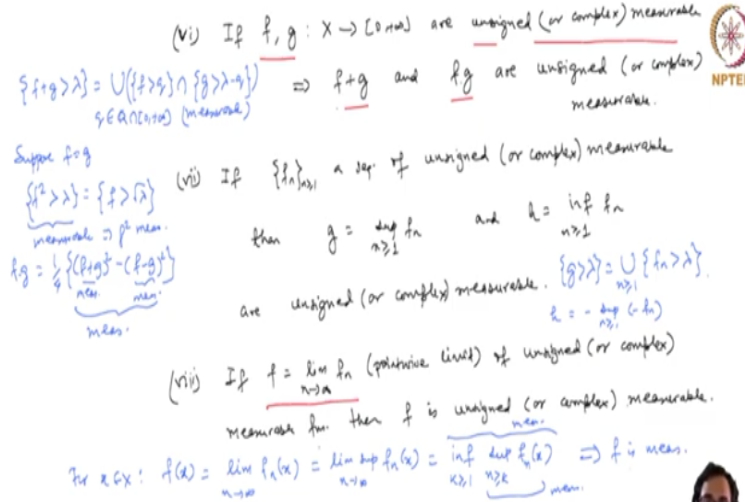 (vi) If f, g : X → [0, +∞] are unsigned (or complex) measurable
⇒ f+g and f.g are unsigned (or complex) measurable.
NPTEL
{f+g > λ} = ∪({f > q} ∩ {g > λ-q})
q∈Q∩[0,+∞] (measurable)
Suppose f=g
{f² > λ} = {f > √λ}
measurable ⇒ f² meas.
f.g = 1/4 {(f+g)² - (f-g)²}
meas. meas.
meas.
(vii) If {fₙ}ₙ≥₁ a seq. of unsigned (or complex) measurable
then g = sup fₙ and h = inf fₙ
n≥1 n≥1
are unsigned (or complex) measurable.
{g > λ} = ∪ {fₙ > λ}.
n≥1
h = - sup (-fₙ)
n≥1
(viii) If f = lim fₙ (pointwise limit) of unsigned (or complex)
n→∞
measurable fns. then f is unsigned (or complex) measurable.
meas.
For x∈X : f(x) = lim fₙ(x) = lim sup fₙ(x) = inf sup fₙ(x) ⇒ f is meas.
n→∞ n→∞ k≥1 n≥k
meas.